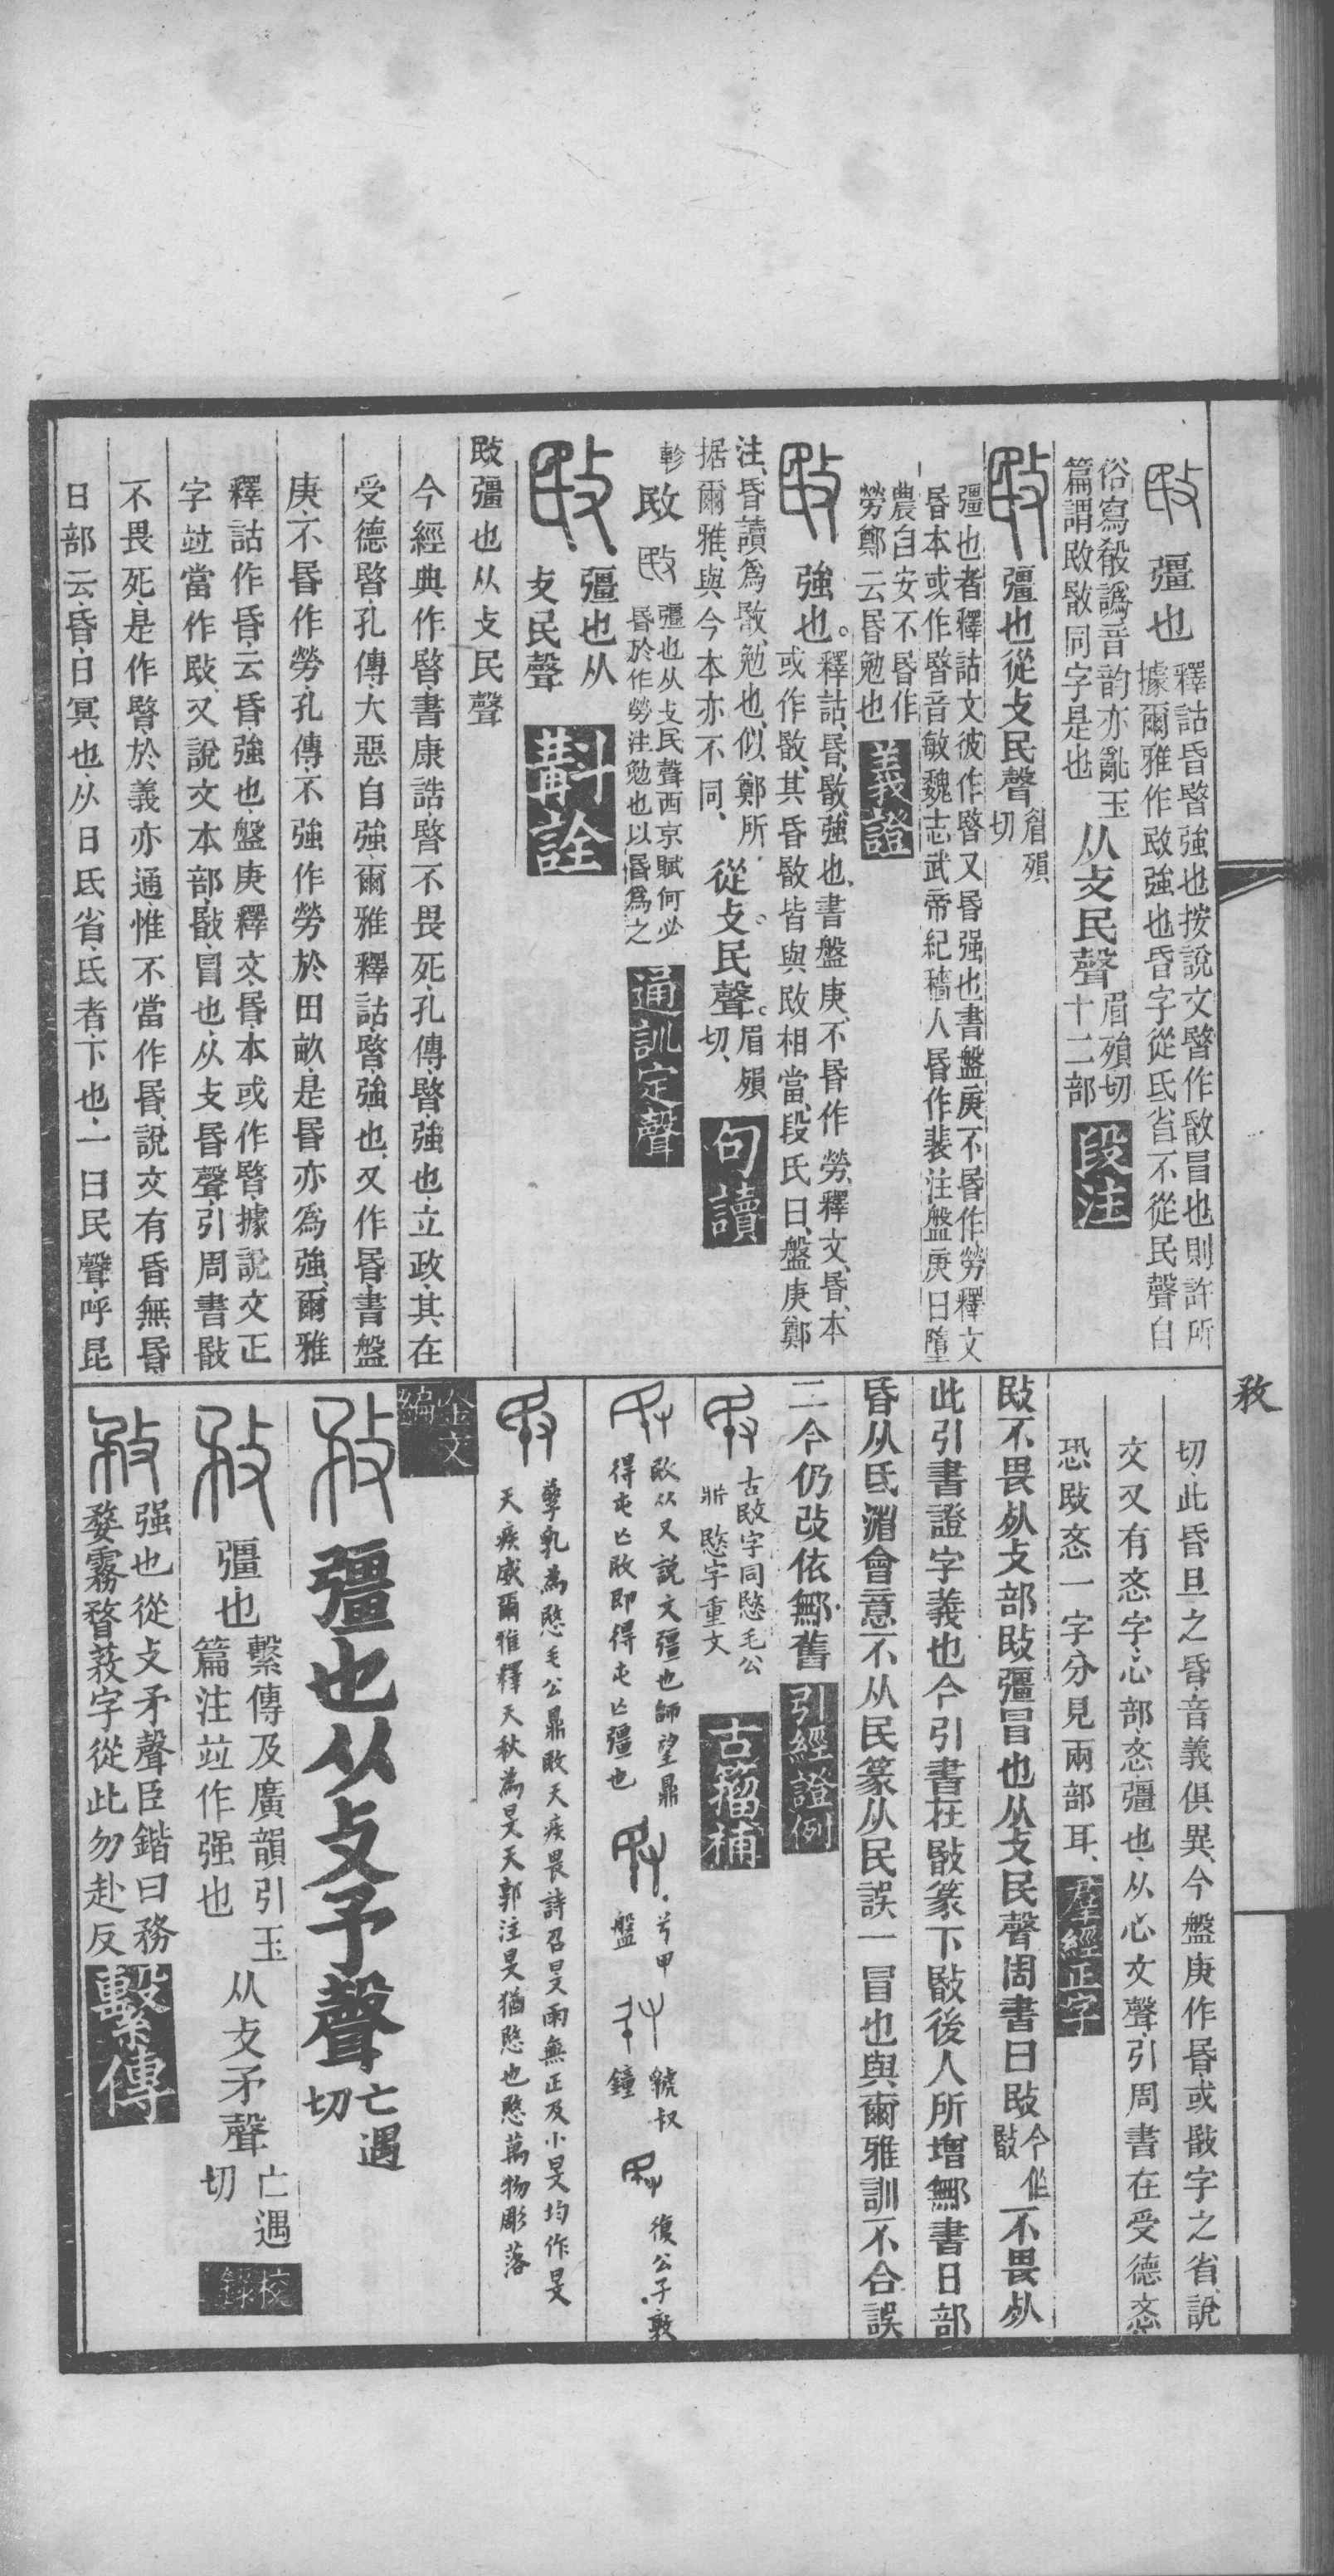 彊也
釋詁昏暋強也按説文暋作敯冒也則許所
據爾雅作敃強也昏字從氏省不從民聲自
俗寫殽譌音韵亦亂玉
篇謂敃敯同字是也
从攴民聲
眉殞切
十二部
段注
彊也從攴民聲
眉殞
切
彊也者釋詁文彼作暋又昬强也書盤庚不昬作勞釋文
昬本或作暋音敏魏志武帝紀穡人昬作裴注盤庚曰墮
農自安不昬作
勞鄭云昬勉也
義證
強也。
釋詁、昬、敯、強也、書盤庚、不昬作勞、釋文、昬、本
或作敯、其昏敯皆與敃相當、段氏曰、盤庚鄭
注、昏讀爲敯、勉也、似鄭所
据爾雅、與今本亦不同、
從攴。民聲。
眉殞
切、
句讀
軫
敃
彊也从攴民聲西京賦何必
昬於作勞注勉也以昬爲之
通訓定聲
彊也从
攴民聲
斠詮
敃彊也从攴民聲
今經典作暋書康誥暋不畏死孔傳暋強也立政其在
受德暋孔傳大惡自強爾雅釋詁暋強也又作昬書盤
庚不昬作勞孔傳不強作勞於田畝是昬亦爲強爾雅
釋詁作昏云昏強也盤庚釋文昬本或作暋據説文正
字竝當作敃又説文本部敯冒也从攴昏聲引周書敯
不畏死是作暋於義亦通惟不當作昬説文有昏無昬
日部云昏日冥也从日氐省氐者下也一曰民聲呼昆
敄
切此昏旦之昏音義俱異今盤庚作昬或敯字之省説
文又有忞字心部忞彊也从心文聲引周書在受德忞
恐敃忞一字分見兩部耳、
羣經正字
敃不畏𣦸攴部敃彊冒也从攴民聲周書曰敃
今作
敯
不畏𣦸
此引書證字義也今引書在敯篆下敯後人所增鄦書日部
昏从氐㴕會意不从民篆从民誤一冒也與爾雅訓不合誤
二今仍改依鄦舊
引經證例
古敃字同愍毛公
㫺愍字重文
古籀補
敃从又説文彊也師望鼎
得屯亡敃即得屯亡彊也
兮甲
盤
虢叔
鐘
復公子敦
孳乳爲愍毛公鼎敃天疾畏詩召旻雨無正及小旻均作旻
天疾威爾雅釋天秋爲旻天郭注旻猶愍也愍萬物彫落
金文
編
彊也从攴矛聲
亡遇
切
彊也
繫傳及廣韻引玉
篇注竝作强也
从攴矛聲
亡遇
切
校
錄
强也從攴矛聲臣鍇曰務
婺霧瞀蓩字從此勿赴反
繫傳